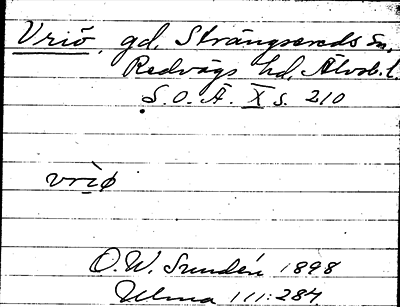 Vriö, gd, Strängsereds sn,
Redvägs hd, Älvsb. l.
S.O.Ä. X s. 210
vrìø
O. W. Sundén 1898
Ulma 111:284